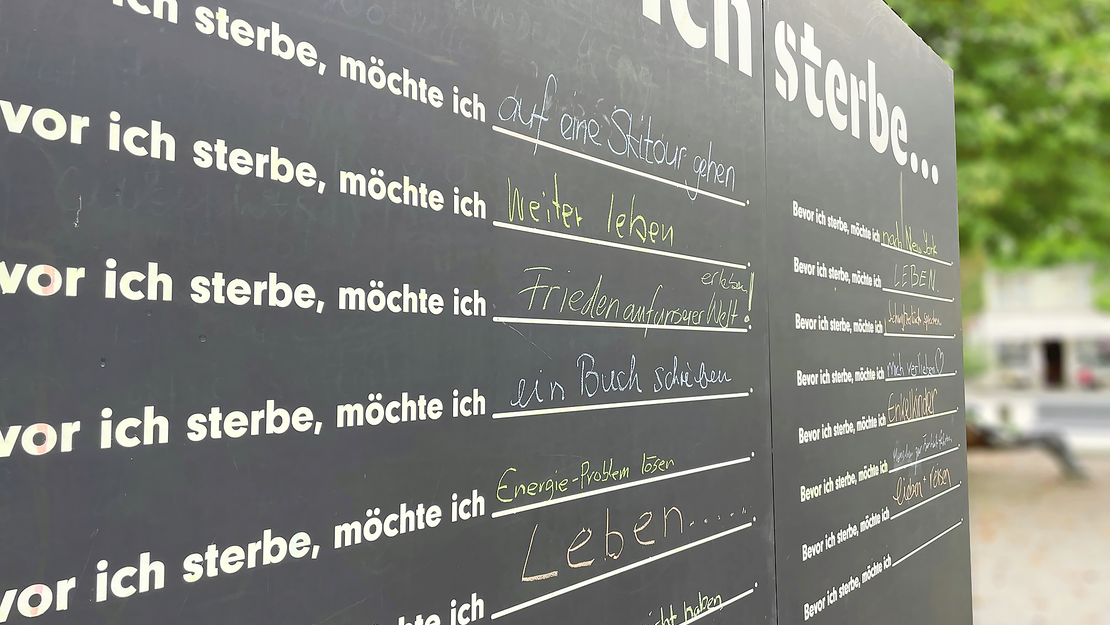 ich sterbe...
ich sterbe, möchte ich auf eine Skitour gehen.
vor ich sterbe, möchte ich weiter leben.
vor ich sterbe, möchte ich Frieden auf unserer Welt erleben!
vor ich sterbe, möchte ich ein Buch schreiben.
vor ich sterbe, möchte ich Energie-Problem lösen.
vor ich sterbe, möchte ich Leben.....
möchte ich haben,
Bevor ich sterbe, möchte ich nach New York.
Bevor ich sterbe, möchte ich LEBEN.
Bevor ich sterbe, möchte ich
Bevor ich sterbe, möchte ich mich verlieben♡.
Bevor ich sterbe, möchte ich Enkelkinder.
Bevor ich sterbe, möchte ich
Bevor ich sterbe, möchte ich lieben + reisen.
Bevor ich sterbe, möchte ich